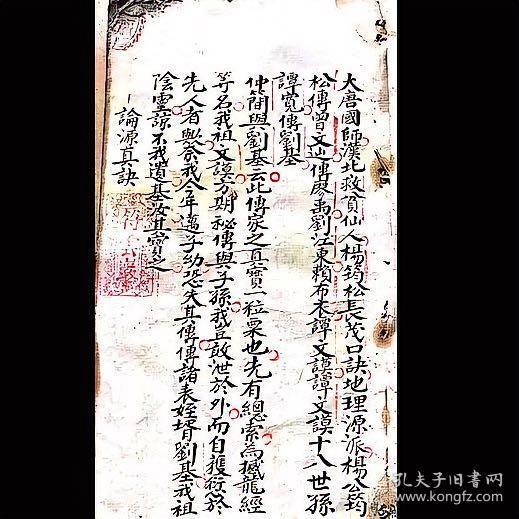 大唐國師漠北救貧仙人楊筠松長茂口訣地理源派楊公筠
松傳曾文辿傳廖禹劉江東賴布衣譚文謨譚文謨十八世孫
譚寬傳劉基
仲簡與劉基云此傳家之真寶一粒粟也先有總索為撼龍經
等名我祖文謨分明秘傳與子孫我豈敢泄於外而自獲於
先人者與奈我今年邁子幼恐失其傳傳諸表姪壻劉基我祖
陰靈諒不我遺基汝其寶之
論源真訣
孔夫子旧书网
www.kongfz.com